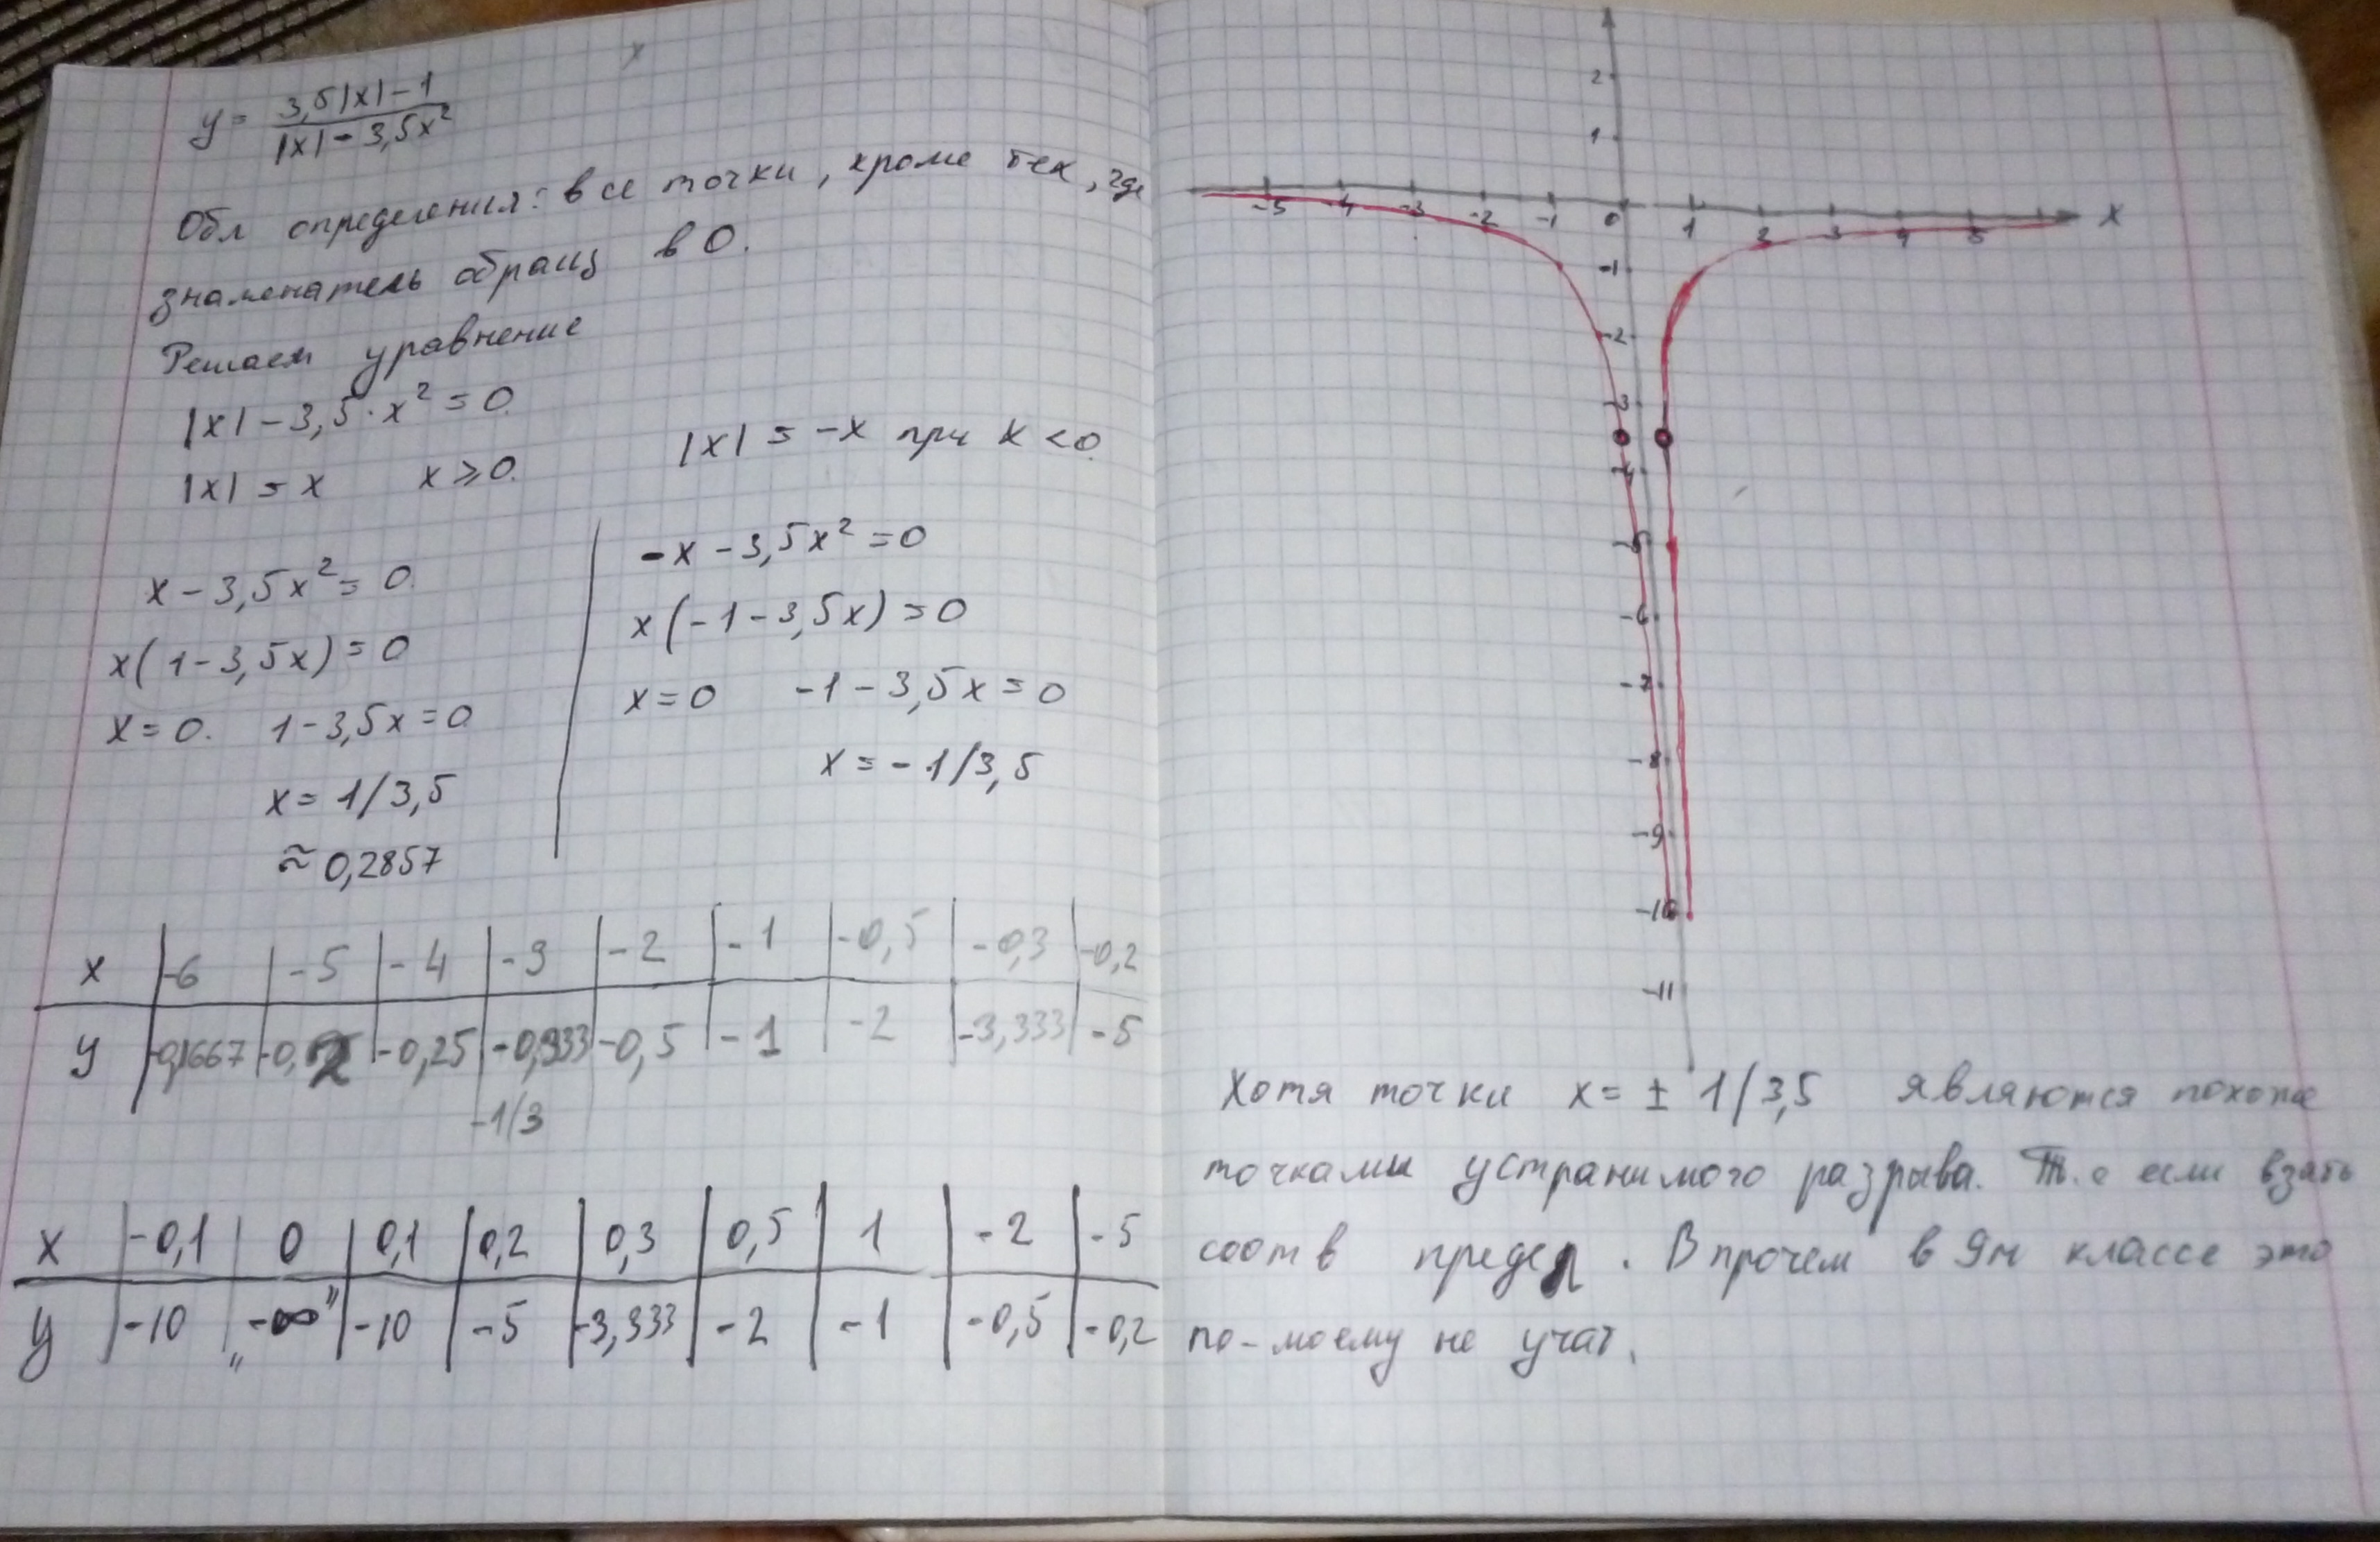 y = (3,5|x| - 1) / (|x| - 3,5x²)
Обл определения: все точки, кроме тех, где
знаменатель обращ в 0.
Решаем уравнение
|x| - 3,5·x² = 0.
|x| = x x ≥ 0. |x| = -x при x < 0.
x - 3,5x² = 0.
x(1 - 3,5x) = 0
x = 0. 1 - 3,5x = 0
x = 1/3,5
≈ 0,2857
-x - 3,5x² = 0
x(-1 - 3,5x) = 0
x = 0 -1 - 3,5x = 0
x = -1/3,5
x | -6 | -5 | -4 | -3 | -2 | -1 | -0,5 | -0,3 | -0,2
y | -0,1667 | -0,2 | -0,25 | -0,333 | -0,5 | -1 | -2 | -3,333 | -5
-1/3
x | -0,1 | 0 | 0,1 | 0,2 | 0,3 | 0,5 | 1 | -2 | -5
y | -10 | „-∞" | -10 | -5 | -3,333 | -2 | -1 | -0,5 | -0,2
2
1
-5 -4 -3 -2 -1 0 1 2 3 4 5 x
-1
-2
-3
-4
-5
-6
-7
-8
-9
-10
-11
Хотя точки x = ± 1/3,5 являются похоже
точками устранимого разрыва. Т.е если взять
соотв предел. Впрочем в 9м классе это
по-моему не учат.